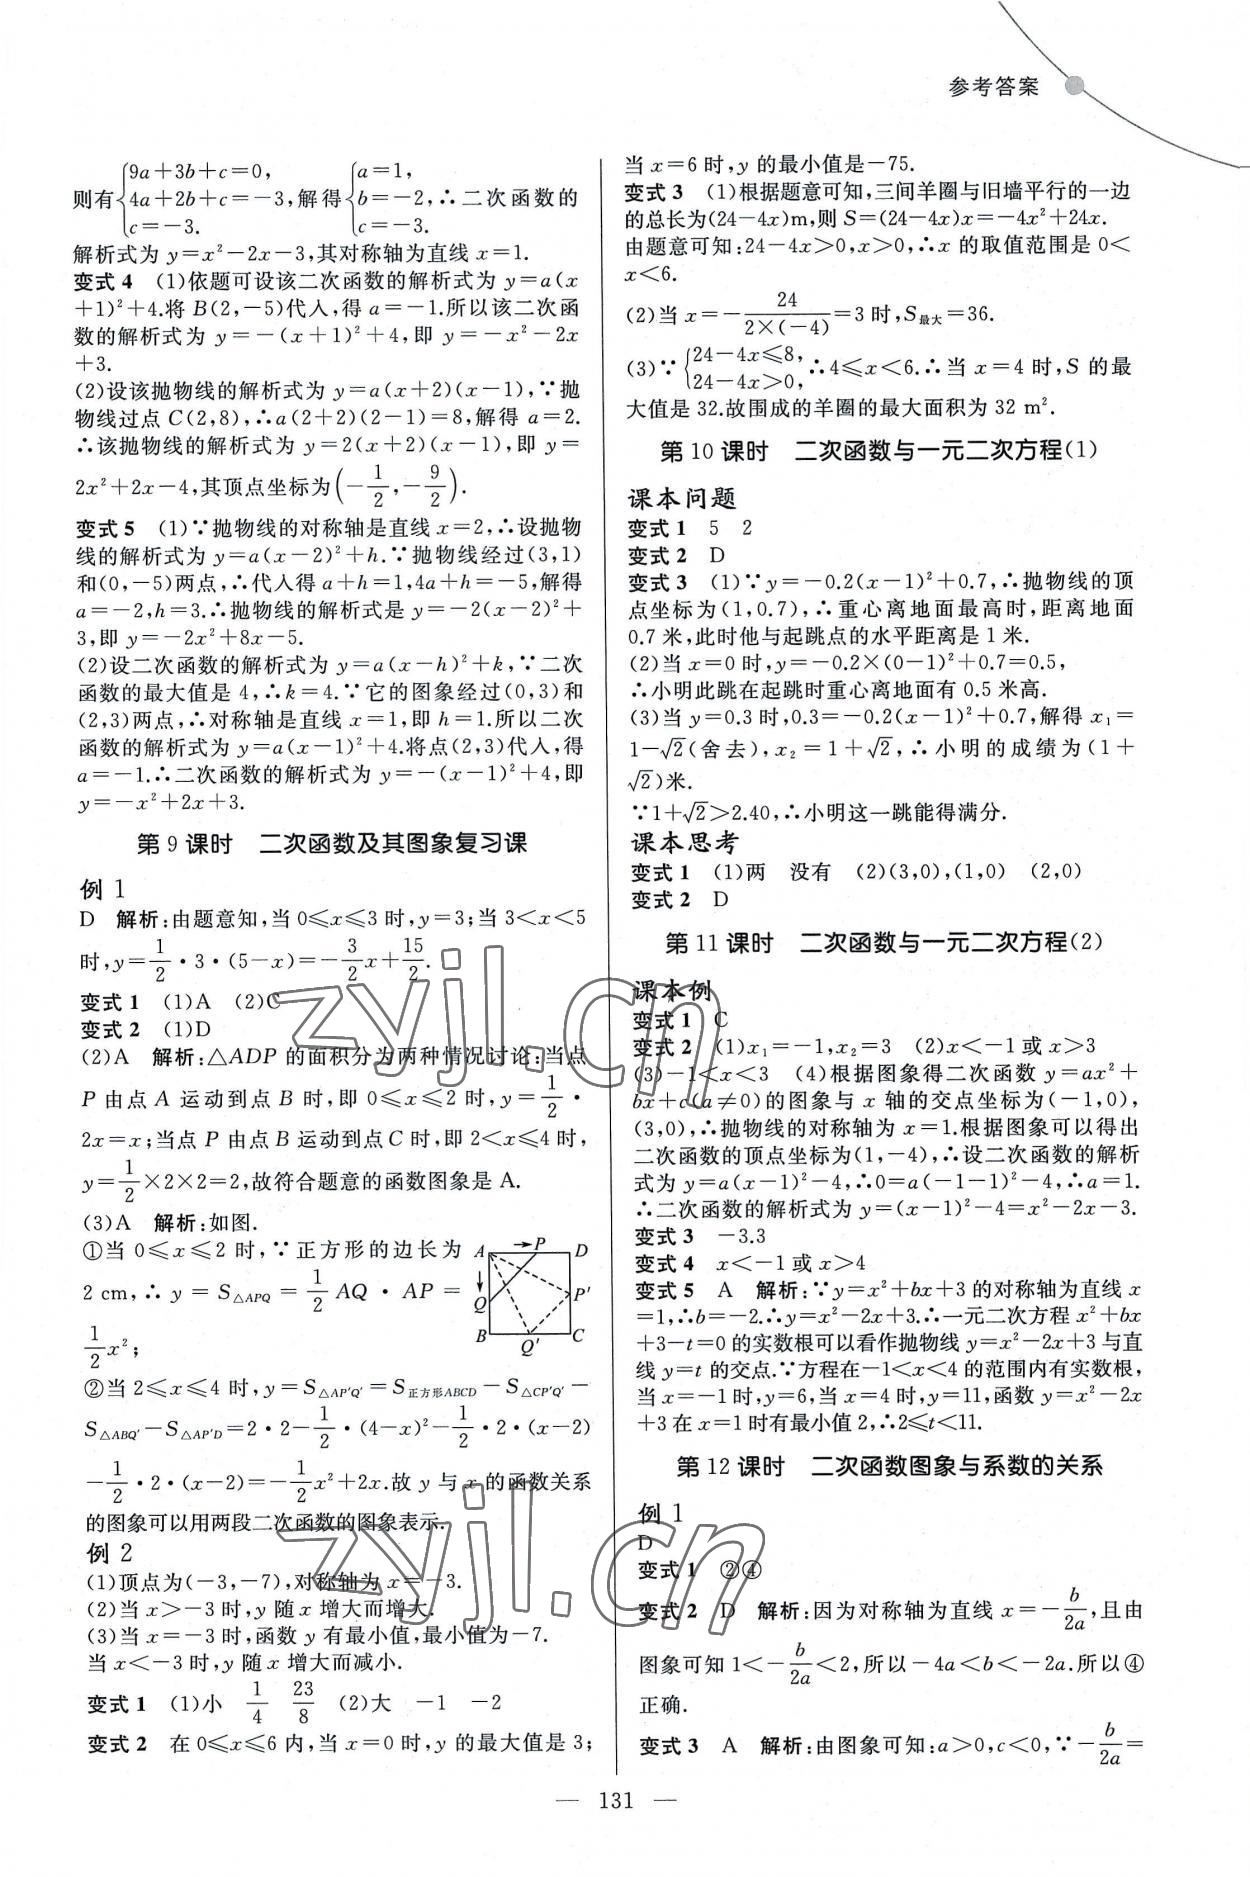 参考答案
则有{9a+3b+c=0, 4a+2b+c=-3, c=-3. 解得{a=1, b=-2, c=-3. ∴二次函数的
解析式为 y=x²-2x-3,其对称轴为直线 x=1.
变式 4 (1)依题可设该二次函数的解析式为 y=a(x
+1)²+4.将 B(2,-5)代入,得 a=-1.所以该二次函
数的解析式为 y=-(x+1)²+4,即 y=-x²-2x
+3.
(2)设该抛物线的解析式为 y=a(x+2)(x-1),∵抛
物线过点 C(2,8),∴a(2+2)(2-1)=8,解得 a=2.
∴该抛物线的解析式为 y=2(x+2)(x-1),即 y=
2x²+2x-4,其顶点坐标为(-1/2,-9/2).
变式 5 (1)∵抛物线的对称轴是直线 x=2,∴设抛物
线的解析式为 y=a(x-2)²+h.∵抛物线经过(3,1)
和(0,-5)两点,∴代入得 a+h=1,4a+h=-5,解得
a=-2,h=3.∴抛物线的解析式是 y=-2(x-2)²+
3,即 y=-2x²+8x-5.
(2)设二次函数的解析式为 y=a(x-h)²+k,∵二次
函数的最大值是 4,∴k=4.∵它的图象经过(0,3)和
(2,3)两点,∴对称轴是直线 x=1,即 h=1.所以二次
函数的解析式为 y=a(x-1)²+4.将点(2,3)代入,得
a=-1.∴二次函数的解析式为 y=-(x-1)²+4,即
y=-x²+2x+3.
第 9 课时 二次函数及其图象复习课
例 1
D 解析:由题意知,当 0≤x≤3 时,y=3;当 3<x<5
时,y=1/2·3·(5-x)=-3/2x+15/2.
变式 1 (1)A (2)C
变式 2 (1)D
(2)A 解析:△ADP 的面积分为两种情况讨论:当点
P 由点 A 运动到点 B 时,即 0≤x≤2 时,y=1/2·
2x=x;当点 P 由点 B 运动到点 C 时,即 2<x≤4 时,
y=1/2×2×2=2,故符合题意的函数图象是 A.
(3)A 解析:如图.
①当 0≤x≤2 时,∵正方形的边长为
2 cm,∴y=S△APQ=1/2 AQ·AP=
1/2x²;
A P D
Q P′
B Q′ C
②当 2≤x≤4 时,y=S△AP′Q′=S正方形ABCD-S△CP′Q′-
S△ABQ′-S△AP′D=2·2-1/2·(4-x)²-1/2·2·(x-2)
-1/2·2·(x-2)=-1/2x²+2x.故 y 与 x 的函数关系
的图象可以用两段二次函数的图象表示.
例 2
(1)顶点为(-3,-7),对称轴为 x=-3.
(2)当 x>-3 时,y 随 x 增大而增大.
(3)当 x=-3 时,函数 y 有最小值,最小值为-7.
当 x<-3 时,y 随 x 增大而减小.
变式 1 (1)小 1/4 23/8 (2)大 -1 -2
变式 2 在 0≤x≤6 内,当 x=0 时,y 的最大值是 3;
当 x=6 时,y 的最小值是-75.
变式 3 (1)根据题意可知,三间羊圈与旧墙平行的一边
的总长为(24-4x)m,则 S=(24-4x)x=-4x²+24x.
由题意可知:24-4x>0,x>0,∴x 的取值范围是 0<
x<6.
(2)当 x=-24/(2×(-4))=3 时,S最大=36.
(3)∵{24-4x≤8, 24-4x>0, ∴4≤x<6.∴当 x=4 时,S 的最
大值是 32.故围成的羊圈的最大面积为 32 m².
第 10 课时 二次函数与一元二次方程(1)
课本问题
变式 1 5 2
变式 2 D
变式 3 (1)∵y=-0.2(x-1)²+0.7,∴抛物线的顶
点坐标为(1,0.7),∴重心离地面最高时,距离地面
0.7 米,此时他与起跳点的水平距离是 1 米.
(2)当 x=0 时,y=-0.2×(0-1)²+0.7=0.5,
∴小明此跳在起跳时重心离地面有 0.5 米高.
(3)当 y=0.3 时,0.3=-0.2(x-1)²+0.7,解得 x₁=
1-√2(舍去),x₂=1+√2,∴小明的成绩为(1+
√2)米.
∵1+√2>2.40,∴小明这一跳能得满分.
课本思考
变式 1 (1)两 没有 (2)(3,0),(1,0) (2,0)
变式 2 D
第 11 课时 二次函数与一元二次方程(2)
课本例
变式 1 C
变式 2 (1)x₁=-1,x₂=3 (2)x<-1 或 x>3
(3)-1<x<3 (4)根据图象得二次函数 y=ax²+
bx+c(a≠0)的图象与 x 轴的交点坐标为(-1,0),
(3,0),∴抛物线的对称轴为 x=1.根据图象可以得出
二次函数的顶点坐标为(1,-4),∴设二次函数的解析
式为 y=a(x-1)²-4,∴0=a(-1-1)²-4,∴a=1.
∴二次函数的解析式为 y=(x-1)²-4=x²-2x-3.
变式 3 -3.3
变式 4 x<-1 或 x>4
变式 5 A 解析:∵y=x²+bx+3 的对称轴为直线 x
=1,∴b=-2.∴y=x²-2x+3.∴一元二次方程 x²+bx
+3-t=0 的实数根可以看作抛物线 y=x²-2x+3 与直
线 y=t 的交点.∵方程在-1<x<4 的范围内有实数根,
当 x=-1 时,y=6,当 x=4 时,y=11,函数 y=x²-2x
+3 在 x=1 时有最小值 2,∴2≤t<11.
第 12 课时 二次函数图象与系数的关系
例 1
D
变式 1 ②④
变式 2 D 解析:因为对称轴为直线 x=-b/2a,且由
图象可知 1<-b/2a<2,所以-4a<b<-2a.所以④
正确.
变式 3 A 解析:由图象可知:a>0,c<0,∵-b/2a=
— 131 —
zyjl.cn
zyjl.cn